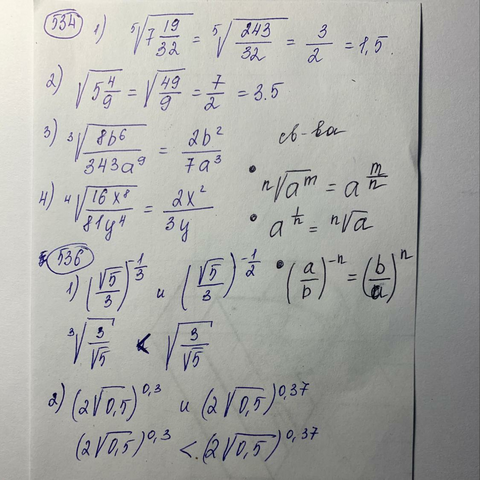 534 1) ⁵√(7 19/32) = ⁵√(243/32) = 3/2 = 1,5.
2) √(5 4/9) = √(49/9) = 7/2 = 3.5
3) ³√(8b⁶/343a⁹) = 2b²/7a³
св-ва
4) ⁴√(16x⁸/81y⁴) = 2x²/3y
• ⁿ√(aᵐ) = a^(m/n)
• a^(1/n) = ⁿ√a
536
1) (√5/3)^(-1/3) и (√5/3)^(-1/2)
• (a/b)^(-n) = (b/a)^n
³√(3/√5) < √(3/√5)
2) (2√0,5)^0,3 и (2√0,5)^0,37
(2√0,5)^0,3 < (2√0,5)^0,37